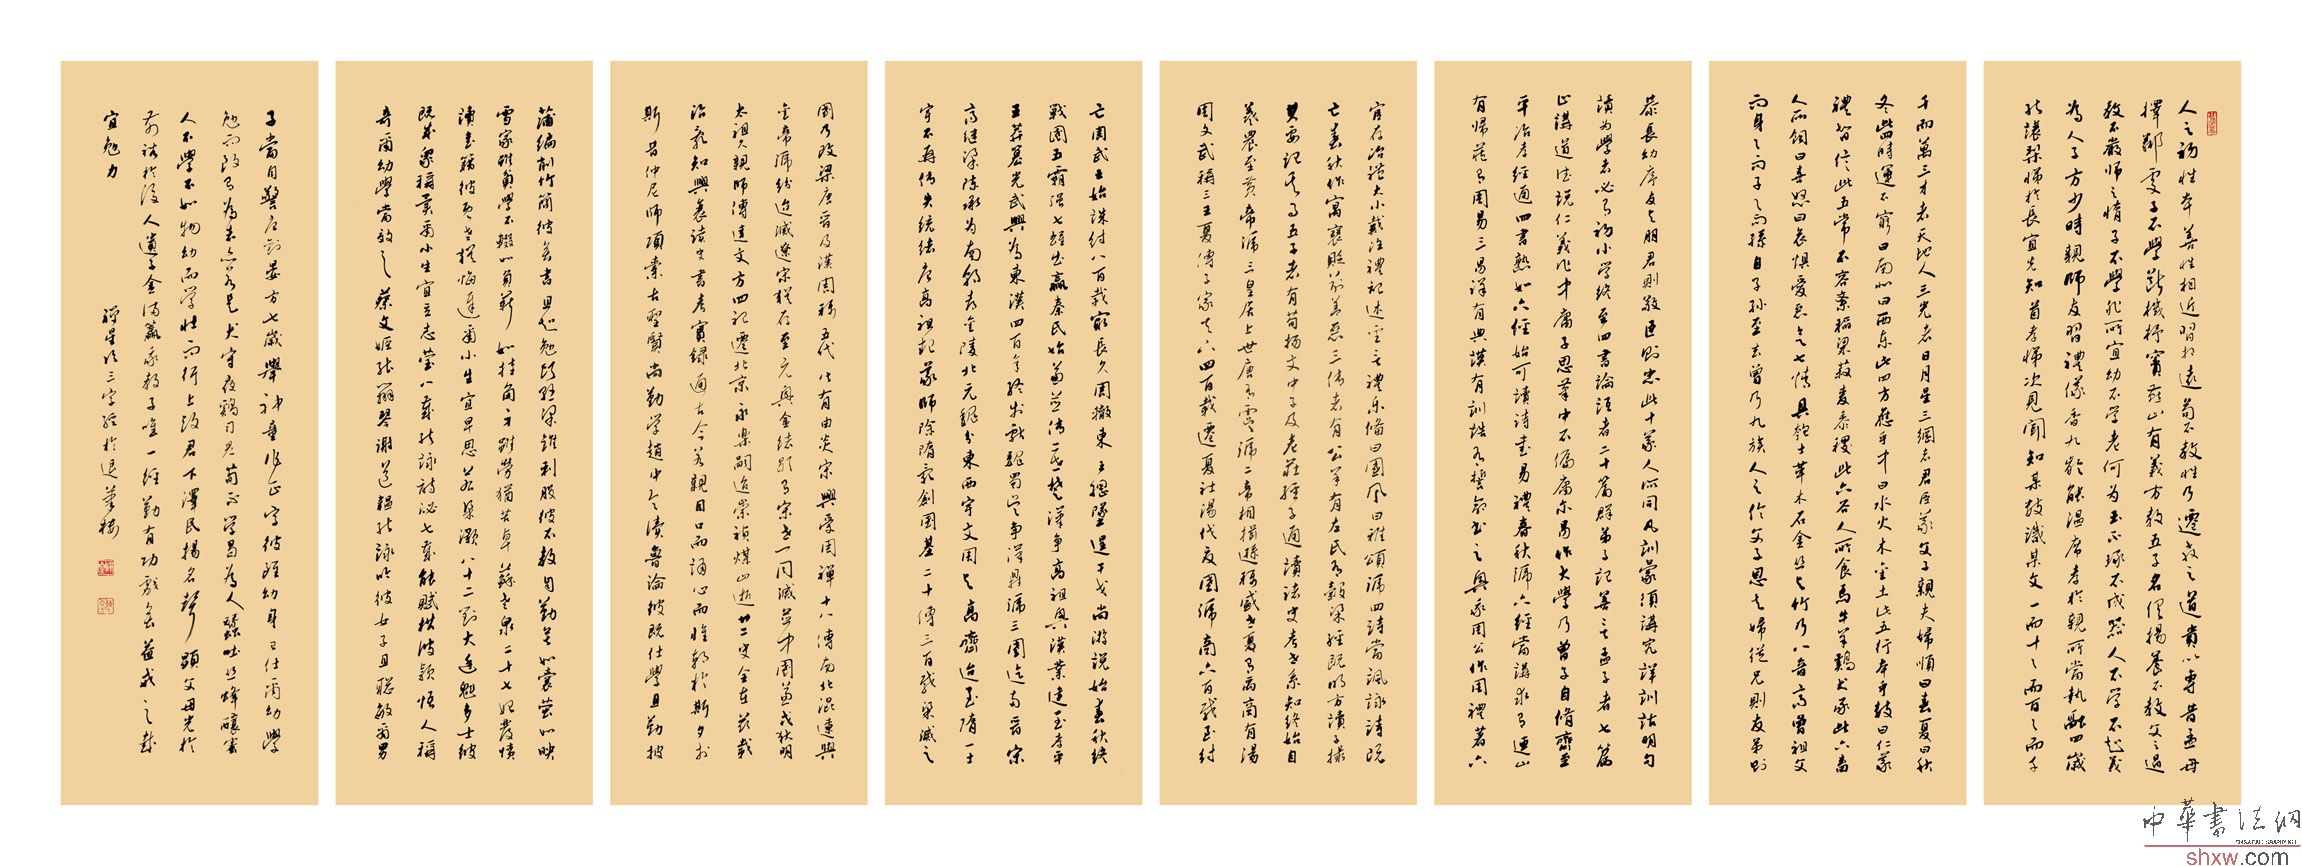 人之初性本善性相近習相遠苟不教性乃遷教之道貴以專昔孟母
擇鄰處子不學斷機杼竇燕山有義方教五子名俱揚養不教父之過
教不嚴師之惰子不學非所宜幼不学老何為玉不琢不成器人不学不知义
為人子方少時親師友習禮儀香九齡能温席孝於親所當執融四歲
能讓梨悌於長宜先知首孝悌次見聞知某數識某文一而十十而百百而千
千而萬三才者天地人三光者日月星三綱者君臣義父子親夫婦順曰春夏曰秋
冬此四時運不窮曰南北曰西东此四方應乎中曰水火木金土此五行本乎數曰仁義
禮智信此五常不容紊稻粱菽麦黍稷此六谷人所食馬牛羊鷄犬豕此六畜
人所飼曰喜怒曰哀懼愛惡欲七情具匏土革木石金丝与竹乃八音高曾祖父
而身身而子子而孫自子孫至玄曾乃九族人之倫父子恩夫婦從兄則友弟則
恭長幼序友与朋君則敬臣則忠此十義人所同凡訓蒙須講究詳訓詁明句
讀為學者必有初小学終至四書論語者二十篇群弟子記善言孟子者七篇
止講道德説仁義作中庸子思筆中不偏庸不易作大學乃曾子自脩齊至
平治孝經通四書熟如六經始可讀詩書易禮春秋號六經當講求有連山
有歸藏有周易三易詳有典謨有訓誥有誓命書之奥我周公作周禮著六
官存治體大小戴注禮記述聖言禮乐備曰國風曰雅頌號四詩當諷詠詩既
亡春秋作寓褒貶别善惡三傳者有公羊有左氏有穀梁經既明方讀子撮
其要記其事五子者有荀揚文中子及老莊經子通讀諸史考世系知終始自
羲農至黄帝號三皇居上世唐有虞號二帝相揖遜稱盛世夏有禹商有湯
周文武稱三王夏傳子家天下四百載遷夏社湯伐夏國號商六百載至紂
亡周武王始誅紂八百載最長久周轍東王綱墜逞干戈尚游說始春秋終
戰國五霸强七雄出嬴秦氏始兼並傳二世楚漢爭高祖興漢業建至孝平
王莽篡光武興為東漢四百年終於獻魏蜀吴争漢鼎號三國迄兩晉宋
齊繼梁陳承為南朝都金陵北元魏分東西宇文周与高齊迨至隋一土
宇不再傳失統緒唐高祖起義師除隋亂創國基二十傳三百載梁滅之
國乃改梁唐晉及漢周稱五代皆有由炎宋興受周禪十八傳南北混遼與
金帝號紛迨滅遼宋猶存至元興金緒歇有宋世一同滅並中國兼戎狄明
太祖久親師傳建文方四祀遷北京永樂嗣迨崇禎煤山逝廿二史全在兹載
治亂知興衰讀史書考實録通古今若親目口而誦心而惟朝於斯夕於
斯昔仲尼師項橐古聖賢尚勤学趙中令讀魯論彼既仕學且勤披
蒲編削竹簡彼無書且知勉頭懸梁錐刺股彼不教自勤苦如囊螢如映
雪家雖貧學不輟如負薪如挂角身雖勞猶苦卓蘇老泉二十七始發憤
讀書籍彼既老猶悔遲爾小生宜早思若梁灝八十二對大廷魁多士彼
既成衆稱異爾小生宜立志瑩八歲能詠詩泌七歲能賦棋彼穎悟人稱
奇爾幼學當效之蔡文姬能辨琴謝道韞能詠吟彼女子且聰敏爾男
子當自警唐劉晏方七歲舉神童作正字彼雖幼身已仕爾幼學
勉而致有為者亦若是犬守夜鷄司晨苟不学曷為人蠶吐丝蜂釀蜜
人不學不如物幼而学壯而行上致君下澤民揚名聲顯父母光於
前裕於後人遺子金满籯我教子唯一經勤有功戲無益戒之哉
宜勉力
三字經於退筆樓
中華書法網
shxw.com